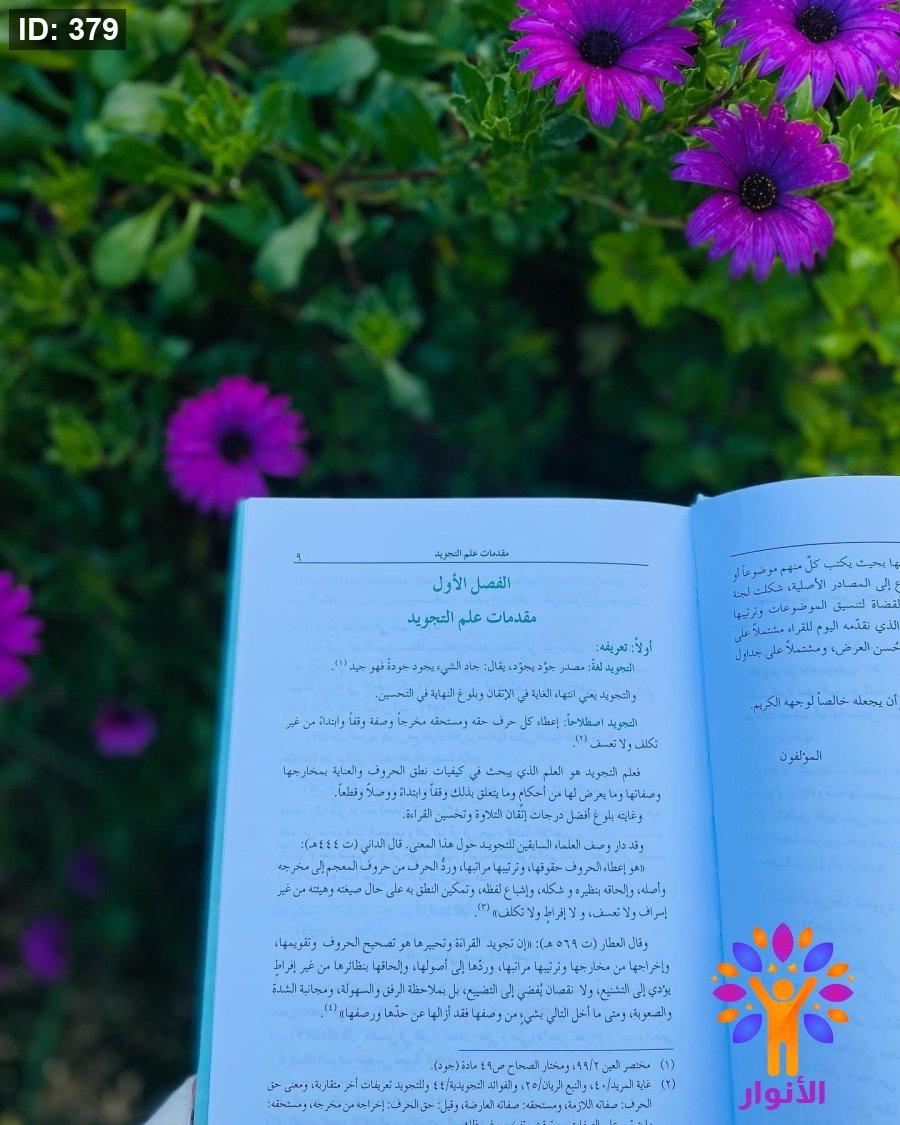 ID: 379
ها بحيث يكتب كلّ منهم موضوعاً أو
ع إلى المصادر الأصلية، شكلت لجنة
لقضاة لتنسيق الموضوعات وترتيبها
الذي نقدّمه اليوم للقراء مشتملاً على
حُسن العرض، ومشتملاً على جداول
أن يجعله خالصاً لوجهه الكريم.
المؤلفون
مقدمات علم التجويد ٩
الفصل الأول
مقدمات علم التجويد
أولاً: تعريفه:
التجويد لغة: مصدر جوَّد يجوّد، يقال: جاد الشيء يجود جودةً فهو جيد (١).
والتجويد يعني انتهاء الغاية في الإتقان وبلوغ النهاية في التحسين.
التجويد اصطلاحاً: إعطاء كل حرف حقه ومستحقه مخرجاً وصفة وقفاً وابتداءً من غير
تكلف ولا تعسف (٢).
فعلم التجويد هو العلم الذي يبحث في كيفيات نطق الحروف والعناية بمخارجها
وصفاتها وما يعرض لها من أحكام وما يتعلق بذلك وقفاً وابتداءً ووصلاً وقطعاً.
وغايته بلوغ أفضل درجات إتقان التلاوة وتحسين القراءة.
وقد دار وصف العلماء السابقين للتجويد حول هذا المعنى. قال الداني (ت ٤٤٤هـ):
«هو إعطاء الحروف حقوقها، وترتيبها مراتبها، وردُّ الحرف من حروف المعجم إلى مخرجه
وأصله، وإلحاقه بنظيره و شكله، وإشباع لفظه، وتمكين النطق به على حال صيغته وهيئته من غير
إسراف ولا تعسف، و لا إفراطٍ ولا تكلف» (٣).
وقال العطار (ت ٥٦٩ هـ): «إن تجويد القراءة وتحبيرها هو تصحيح الحروف وتقويمها،
وإخراجها من مخارجها وترتيبها مراتبها، وردّها إلى أصولها، وإلحاقها بنظائرها من غير إفراطٍ
يؤدي إلى التشنيع، ولا نقصان يُفضي إلى التضييع، بل بملاحظة الرفق والسهولة، ومجانبة الشدة
والصعوبة، ومتى ما أخل التالي بشيءٍ من وصفها فقد أزالها عن حدّها ورصفها» (٤).
(١) مختصر العين ٩٩/٢، ومختار الصحاح ص٤٩ مادة (جود).
(٢) غاية المريد/٤٠، والنبع الريان/٢٥، والفوائد التجويدية/٤٤ وللتجويد تعريفات أخر متقاربة، ومعنى حق
الحرف: صفاته اللازمة، ومستحقه: صفاته العارضة، وقيل: حق الحرف: إخراجه من مخرجه، ومستحقه:
الأنوار